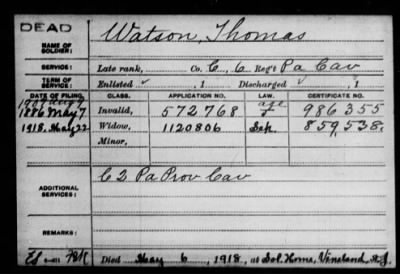 DEAD
Watson, Thomas
NAME OF SOLDIER:
SERVICE: Late rank, Co. C, 6 Reg't Pa Cav
TERM OF SERVICE: Enlisted , 1 Discharged , 1
DATE OF FILING. CLASS. APPLICATION NO. LAW. CERTIFICATE NO.
1886 May 7 Invalid, 572768 986355
1918, May 22 Widow, 1120806 859,538
Minor,
ADDITIONAL SERVICES: C 2 Pa Prov Cav
REMARKS:
Died May 6, 1918, at Sol. Home, Vineland N.J.